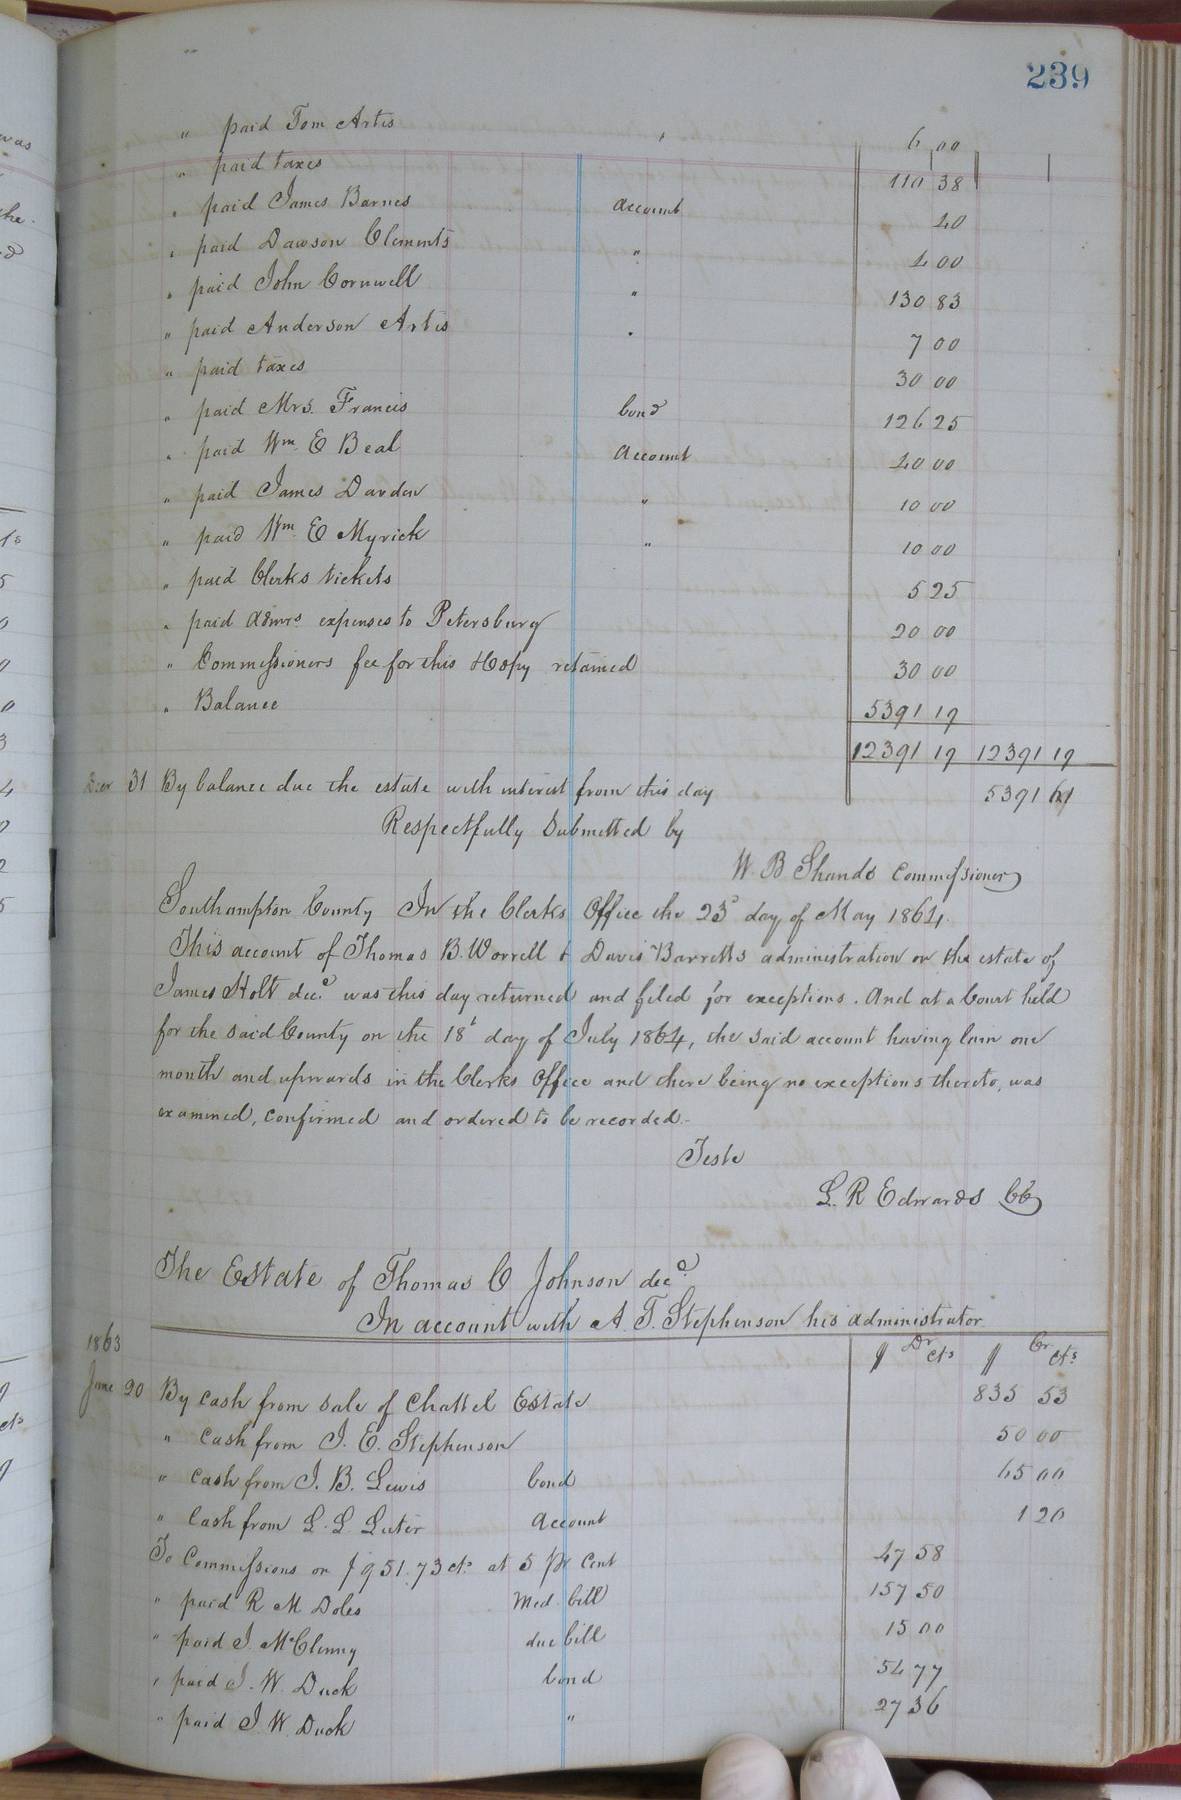 239
" paid Tom Artis 6 00
" paid taxes 110 38
" paid James Barnes account 40
" paid Dawson Clements " 4 00
" paid John Cornwell " 130 83
" paid Anderson Artis " 7 00
" paid taxes 30 00
" paid Mrs. Francis bond 126 25
" paid Wm E Beal Account 40 00
" paid James Darden " 10 00
" paid Wm E Myrick " 10 00
" paid Clerks tickets 5 25
" paid Admrs expenses to Petersburg 20 00
" Commissioners fee for this & Copy retained 30 00
" Balance 5391 19
12391 19 12391 19
Decr 31 By balance due the estate with interest from this day 5391
Respectfully submitted by
W. B Shands Commissioner
Southampton County In the Clerks Office the 23d day of May 1864.
This account of Thomas B. Worrell & Davis Barretts administration on the estate of
James Holt decd was this day returned and filed for exceptions. And at a Court held
for the said County on the 18t day of July 1864, the said account having lain one
month and upwards in the Clerks Office and there being no exceptions thereto, was
examined, confirmed and ordered to be recorded.-
Teste
L. R Edwards CC
The Estate of Thomas C Johnson decd
In account with A. T. Stephenson his administrator
1863 $ Dr cts $ Cr cts
June 20 By cash from sale of Chattel Estate 835 53
" cash from J. E. Stephenson 50 00
" cash from J. B. Lewis bond 65 00
" Cash from L. L. Luter account 1 20
To Commissions on $951.73cts at 5 pr Cent 47 58
" paid R M Doles Med. bill 157 50
" paid J. McClenny due bill 15 00
" paid J. W. Duck bond 54 77
" paid J. W. Duck " 27 36